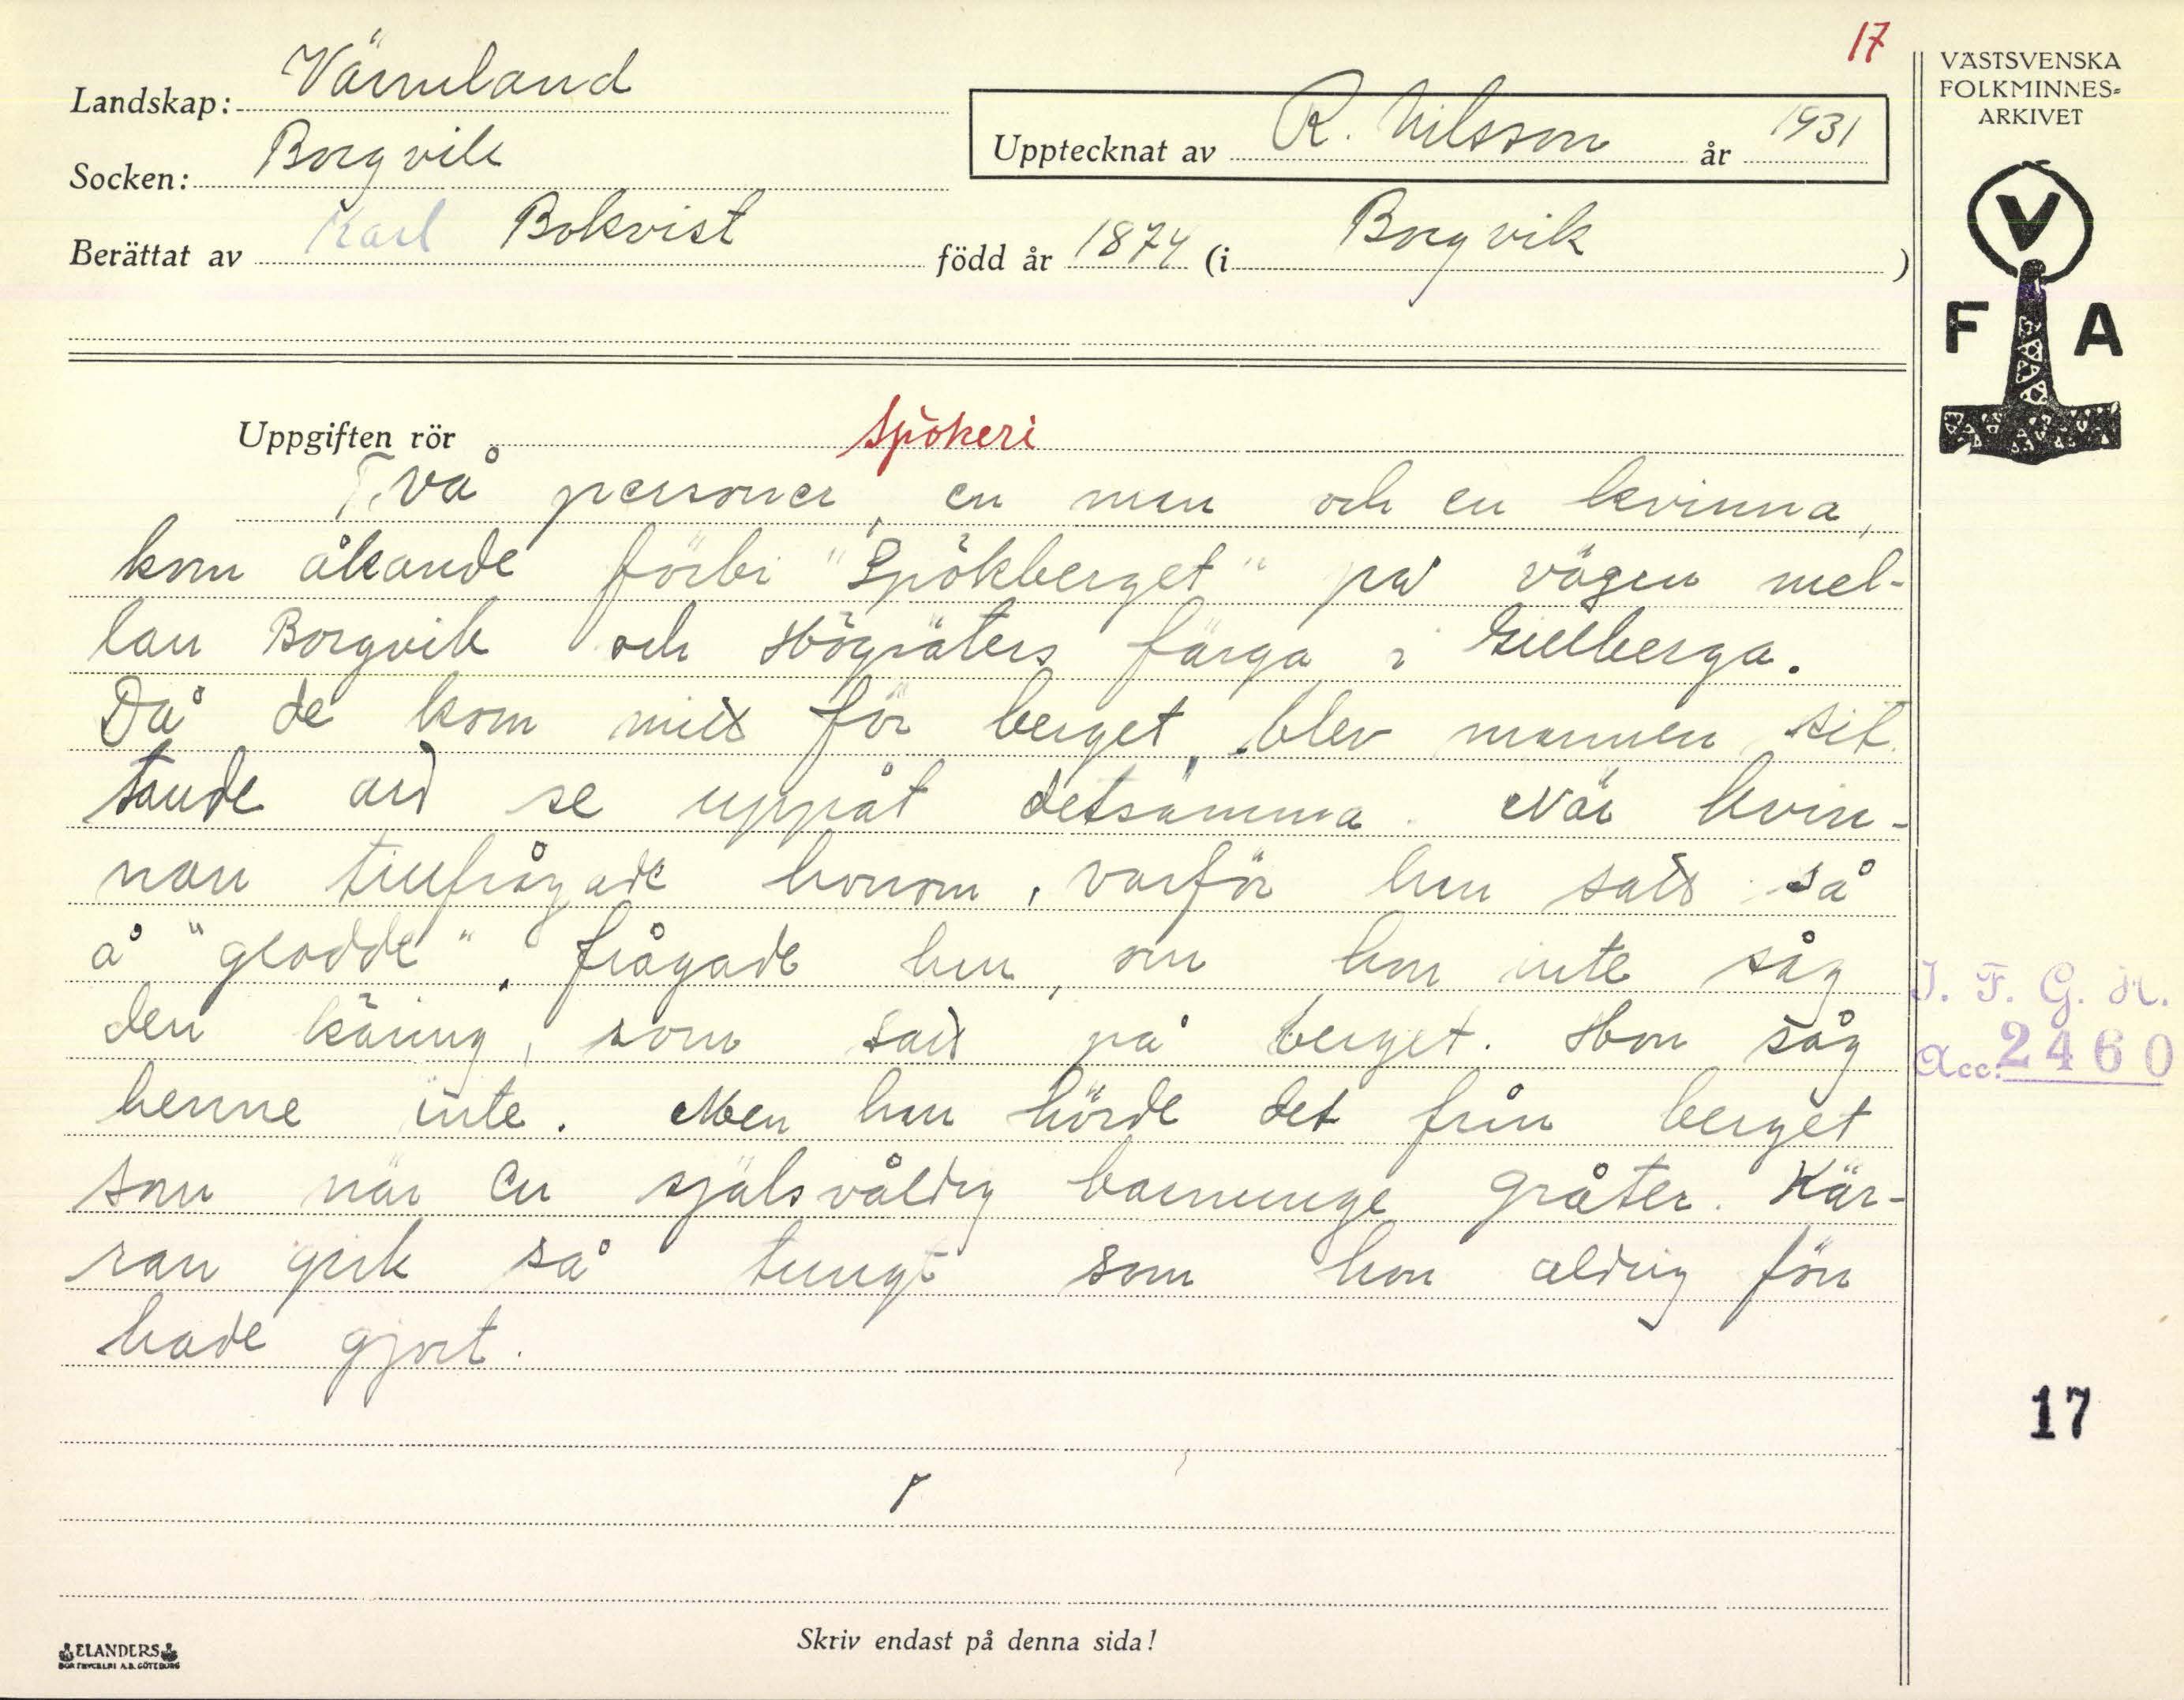 17
Landskap: Värmland
Socken: Borgvik
Berättat av Karl Bokvist
Upptecknat av R. Nilsson år 1931
född år 1874 (i Borgvik)
VÄSTSVENSKA
FOLKMINNES-
ARKIVET
V
F A
Uppgiften rör spökeri
Två personer, en man och en kvinna,
kom åkande förbi "Spökberget" på vägen mel-
lan Borgvik och Högsäters färga i Gillberga.
Då de kom mitt för berget, blev mannen sit-
tande att se uppåt detsamma. När kvin-
nan tillfrågade honom, varför han satt så
å "glodde", frågade han, om hon inte såg
den käring, som satt på berget. Hon såg
henne inte. Men han hörde det från berget
som när en självsvåldig barnunge gråter. Kär-
ran gick så tungt som hon aldrig förr
hade gjort.
I. F. G. H.
Acc. 2460
17
Skriv endast på denna sida!
ELANDERS
BOKTRYCKERI A.B. GÖTEBORG